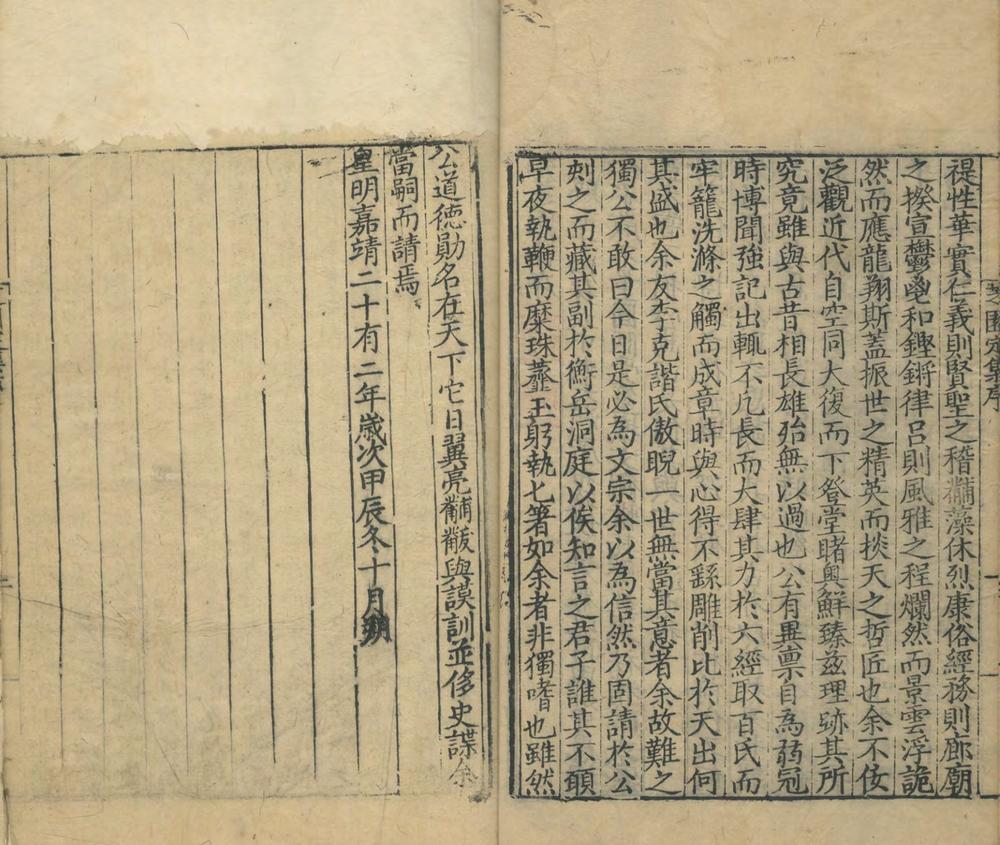 禔性華實仁義則賢聖之稽黼藻休烈康俗經務則廊廟
之揆宣鬱鬯和鏗鏘律呂則風雅之程爛然而景雲浮詭
然而應龍翔斯蓋振世之精英而掞天之哲匠也余不佞
泛觀近代自空同大復而下登堂睹奧鮮臻兹理跡其所
究竟雖與古昔相長雄殆無以過也公有異禀自為弱冠
時博聞強記出輒不凡長而大肆其力於六經取百氏而
牢籠洗滌之觸而成章時與心得不繇雕削比於天出何
其盛也余友李克諧氏傲睨一世無當其意者余故難之
獨公不敢曰今日是必為文宗余以為信然乃固請於公
刻之而藏其副於衡岳洞庭以俟知言之君子誰其不頤
早夜執鞭而糜珠虀玉躬執匕箸如余者非獨嗜也雖然
公道德勛名在天下它日翼亮黼黻與謨訓並侈史諜余
當嗣而請焉
皇明嘉靖二十有二年歲次甲辰冬十月朔